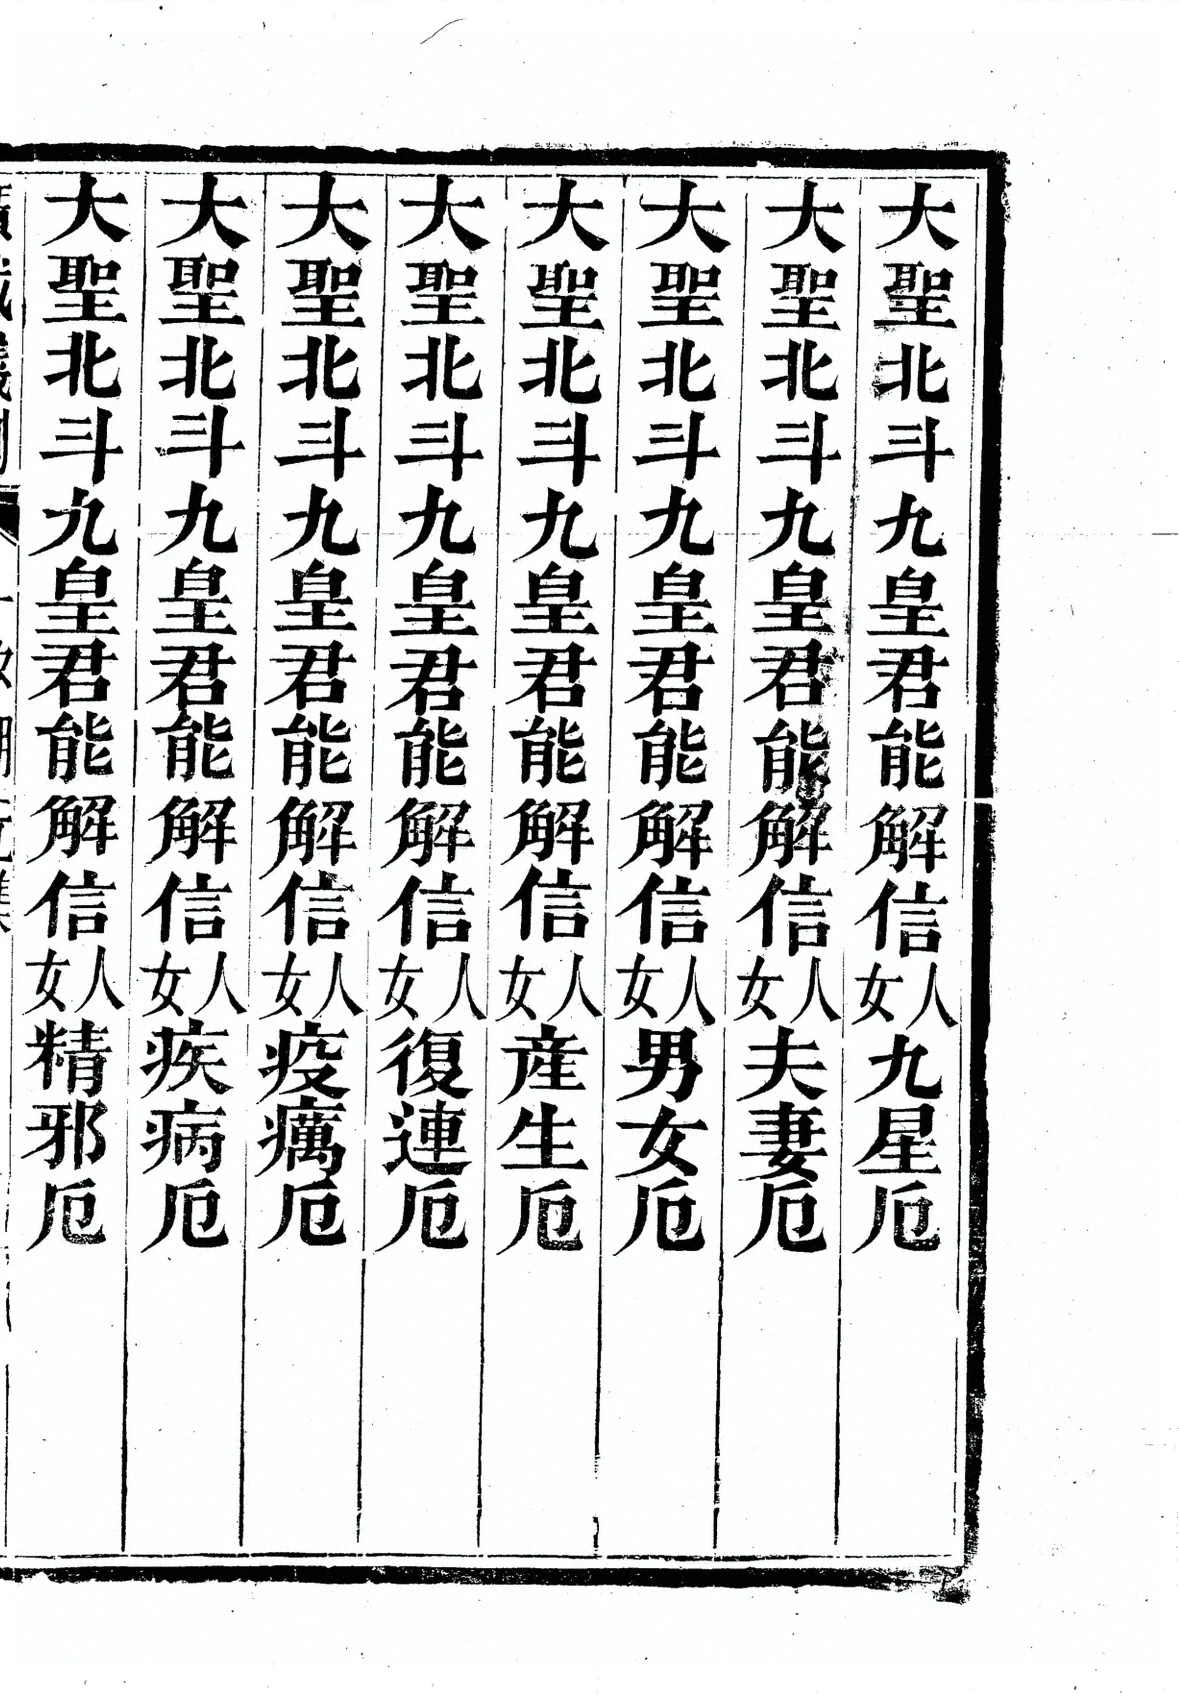 大聖北斗九皇君能解信人女九星厄
大聖北斗九皇君能解信人女夫妻厄
大聖北斗九皇君能解信人女男女厄
大聖北斗九皇君能解信人女産生厄
大聖北斗九皇君能解信人女復連厄
大聖北斗九皇君能解信人女疫癘厄
大聖北斗九皇君能解信人女疾病厄
大聖北斗九皇君能解信人女精邪厄